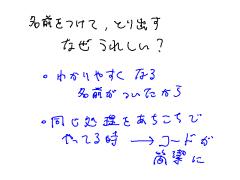 名前をつけて、とり出す
なぜ うれしい?
・わかりやすくなる
名前がついたから
・同じ処理をあちこちで
やってる時 → コードが
簡潔に